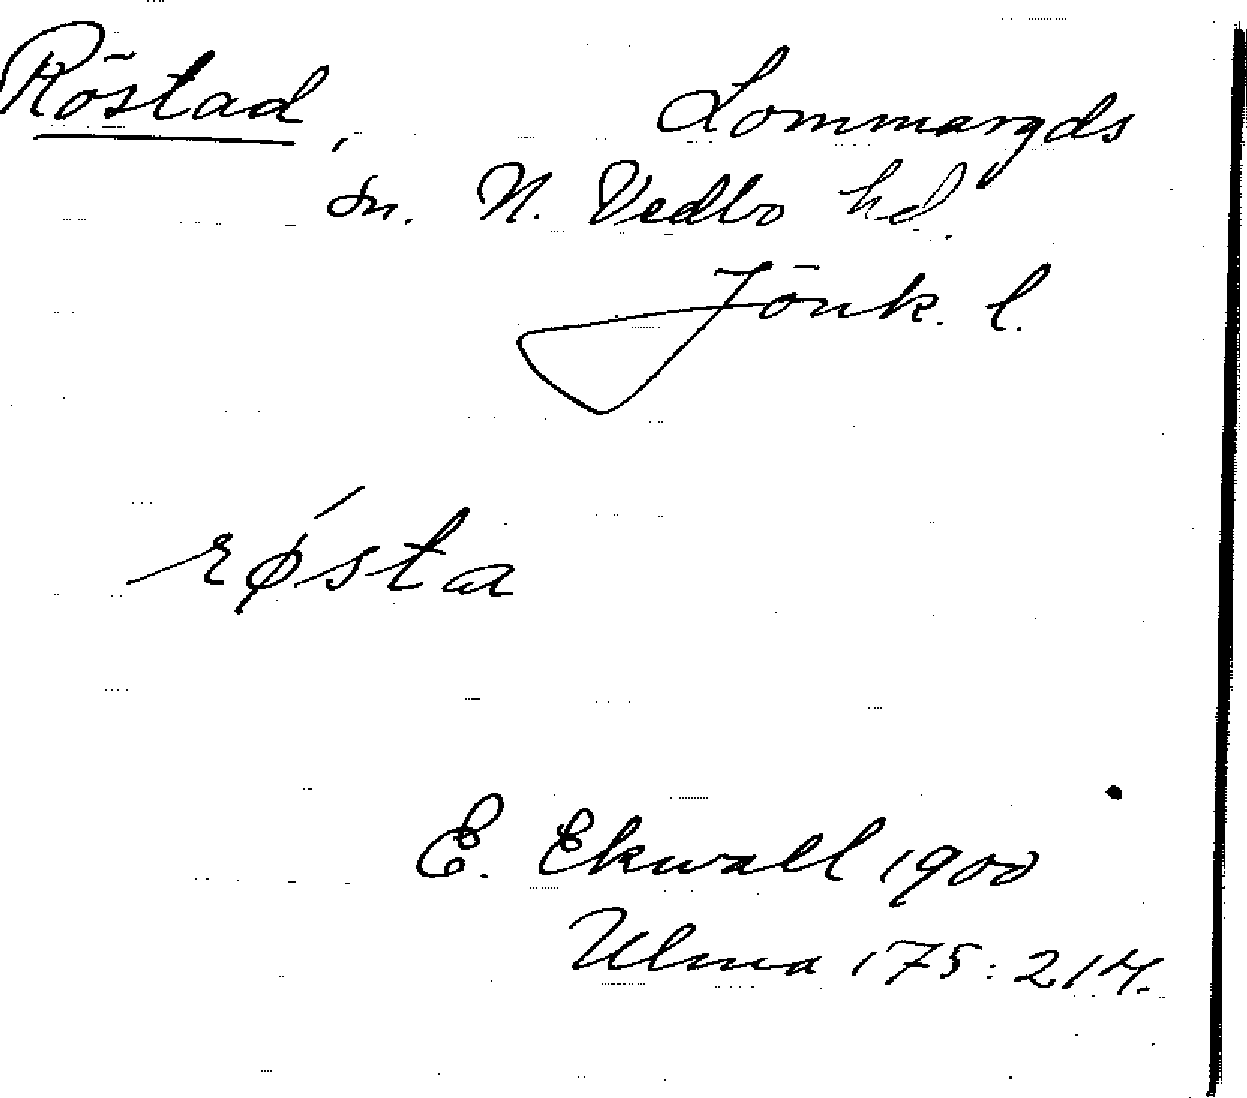 Röstad, Lommaryds
sn. N. Vedbo hd.
Jönk. l.
røsta
E. Ekwall 1900
Ulma 175:214.